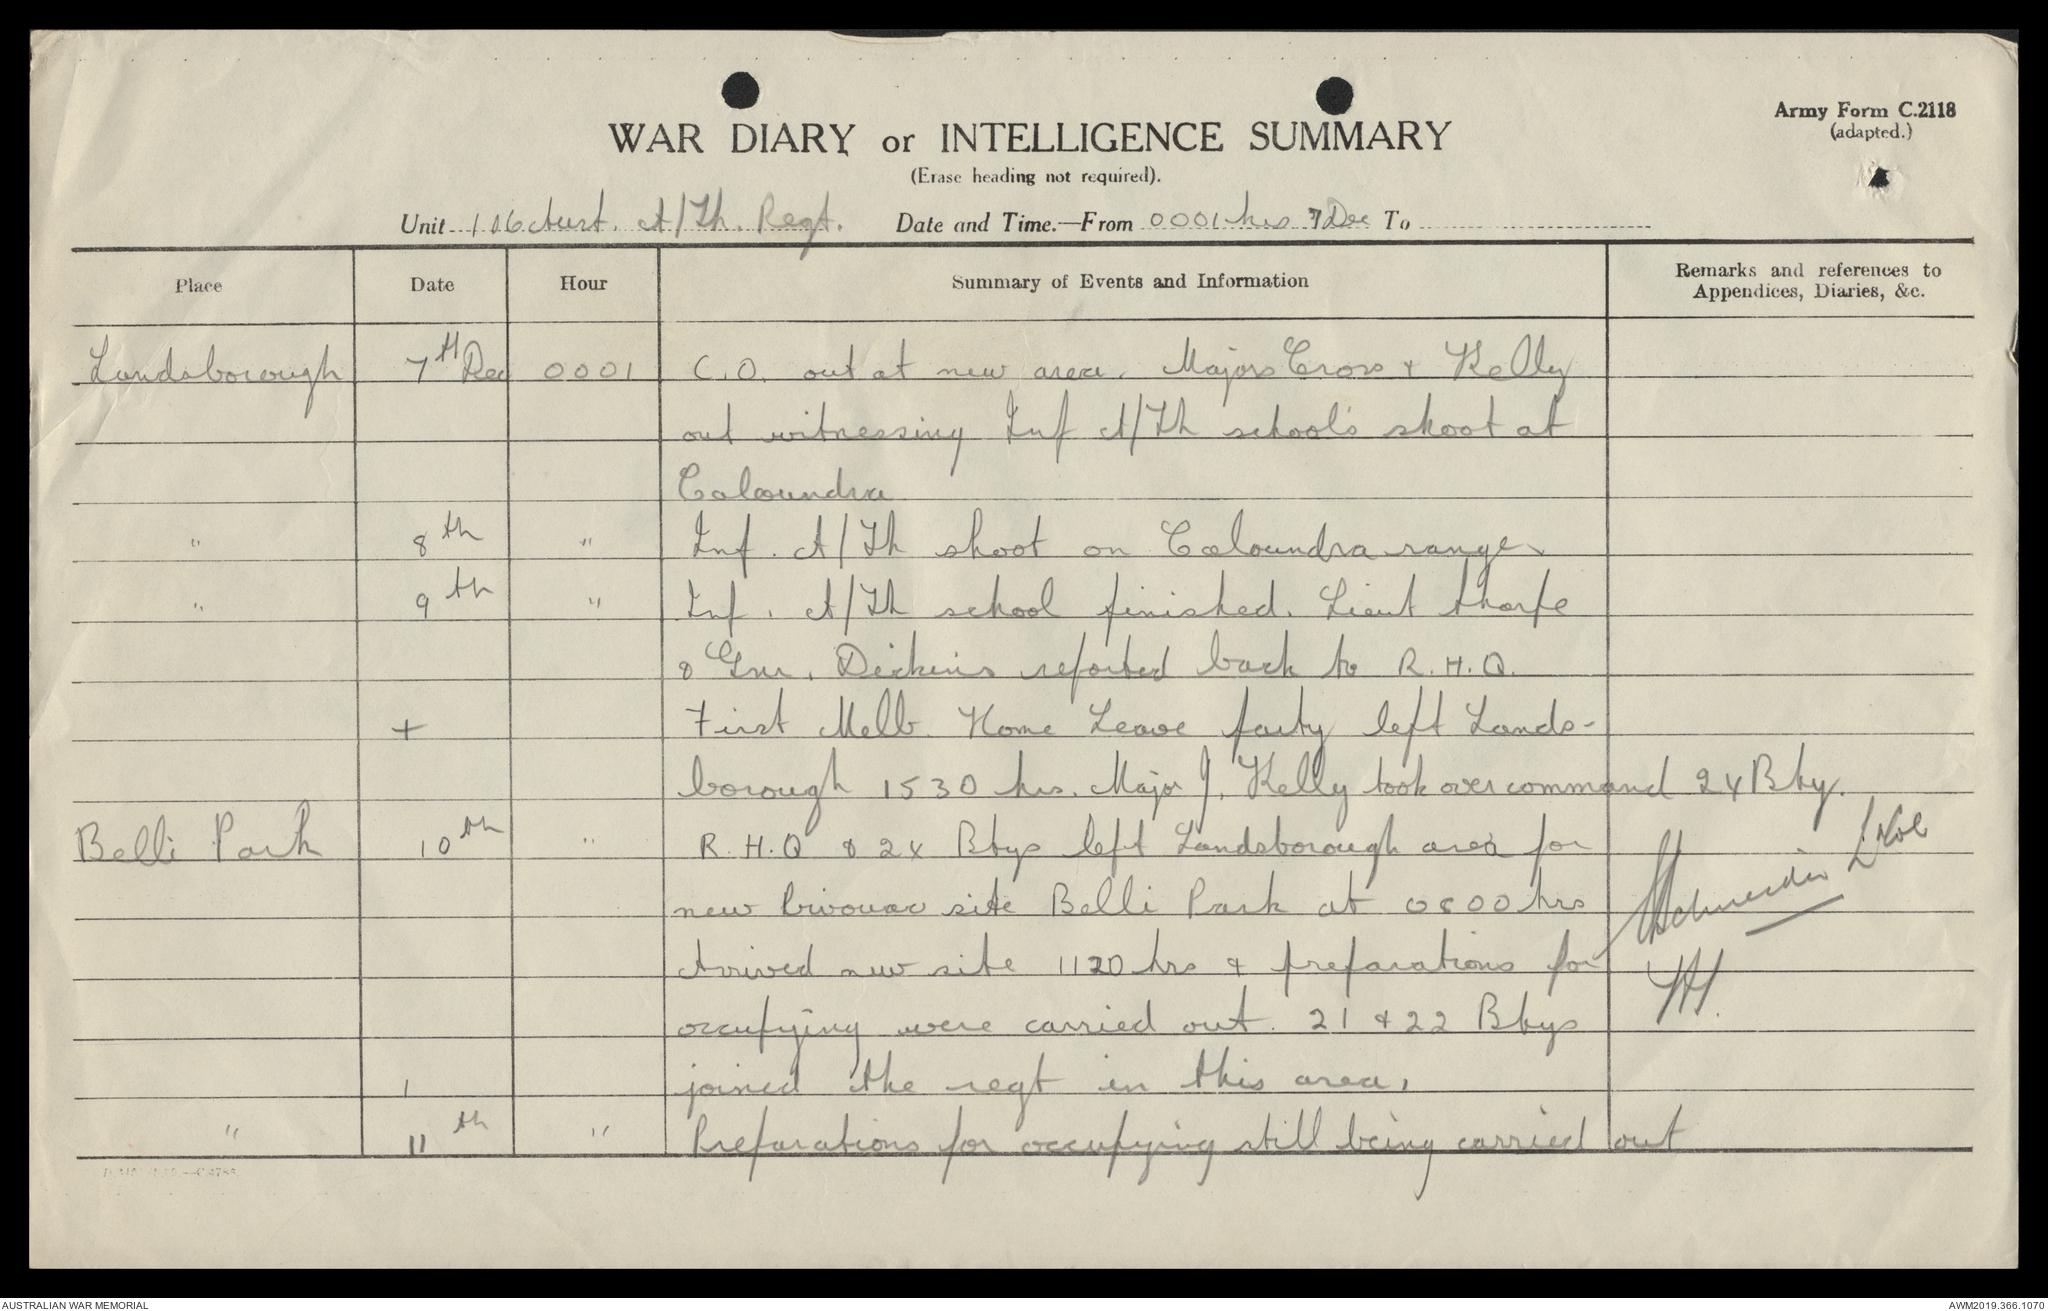 Army Form C.2118
(adapted.)
WAR DIARY or INTELLIGENCE SUMMARY
(Erase heading not required).
Unit 106 Aust. A/Tk. Regt. Date and Time.—From 0001 hrs 7 Dec To
Place Date Hour Summary of Events and Information Remarks and references to Appendices, Diaries, &c.
Landsborough 7th Dec 0001 C.O. out at new area. Majors Cross + Kelly
out witnessing Inf A/Tk school's shoot at
Caloundra
" 8th " Inf. A/Tk shoot on Caloundra range.
" 9th " Inf. A/Tk school finished. Lieut Thorpe
& Gnr. Dickins reported back to R.H.Q.
+ First Melb. Home Leave party left Lands-
borough 1530 hrs. Major J. Kelly took over command 24 Bty.
Belli Park 10th " R.H.Q & 24 Btys left Landsborough area for
new bivouac site Belli Park at 0800 hrs
Arrived new site 1120 hrs & preparations for
occupying were carried out. 21 & 22 Btys
joined the regt in this area.
" 11th " Preparations for occupying still being carried out
AUSTRALIAN WAR MEMORIAL
AWM2019.366.1070